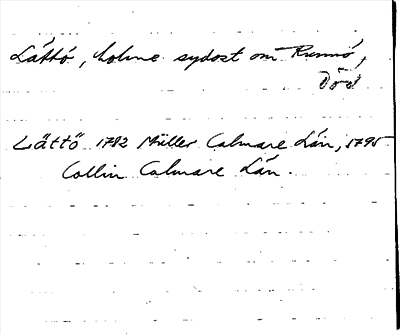 Låttö, holme sydost om Runnö,
Död
Lättö 1782 Müller Calmare Län, 1795
Collin Calmare Län.